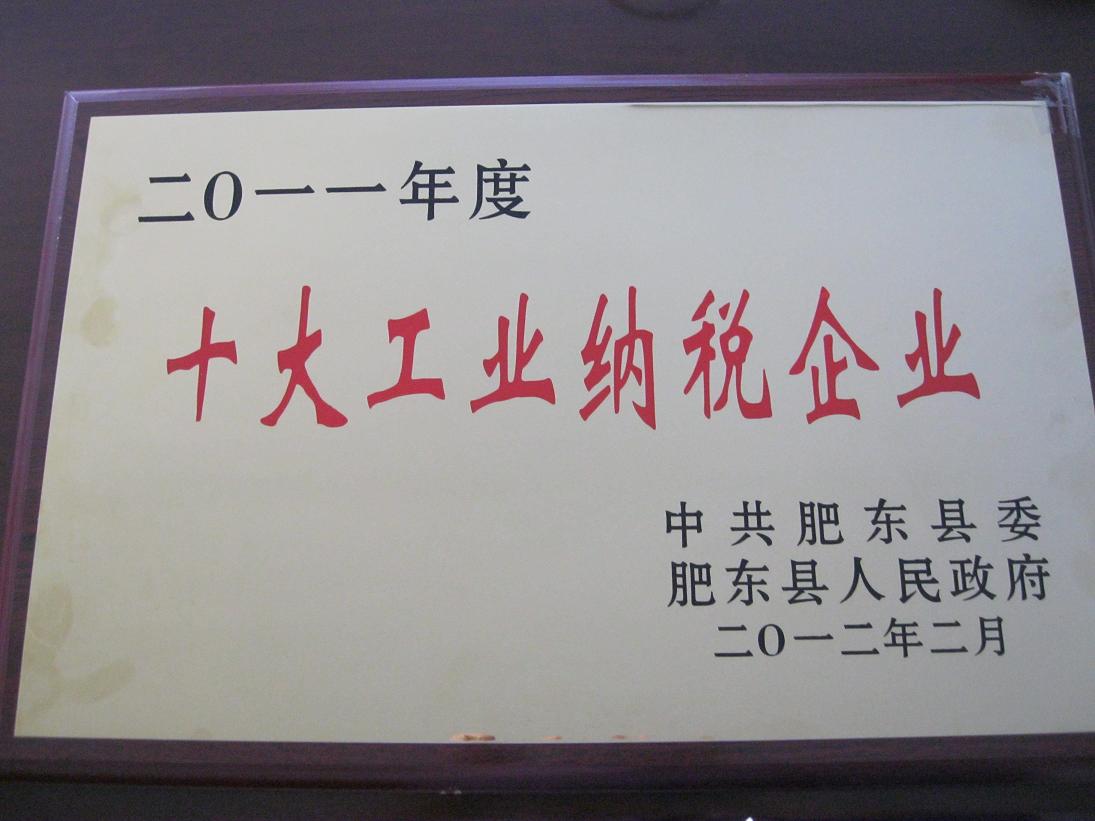 二O一一年度
十大工业纳税企业
中共肥东县委
肥东县人民政府
二O一二年二月